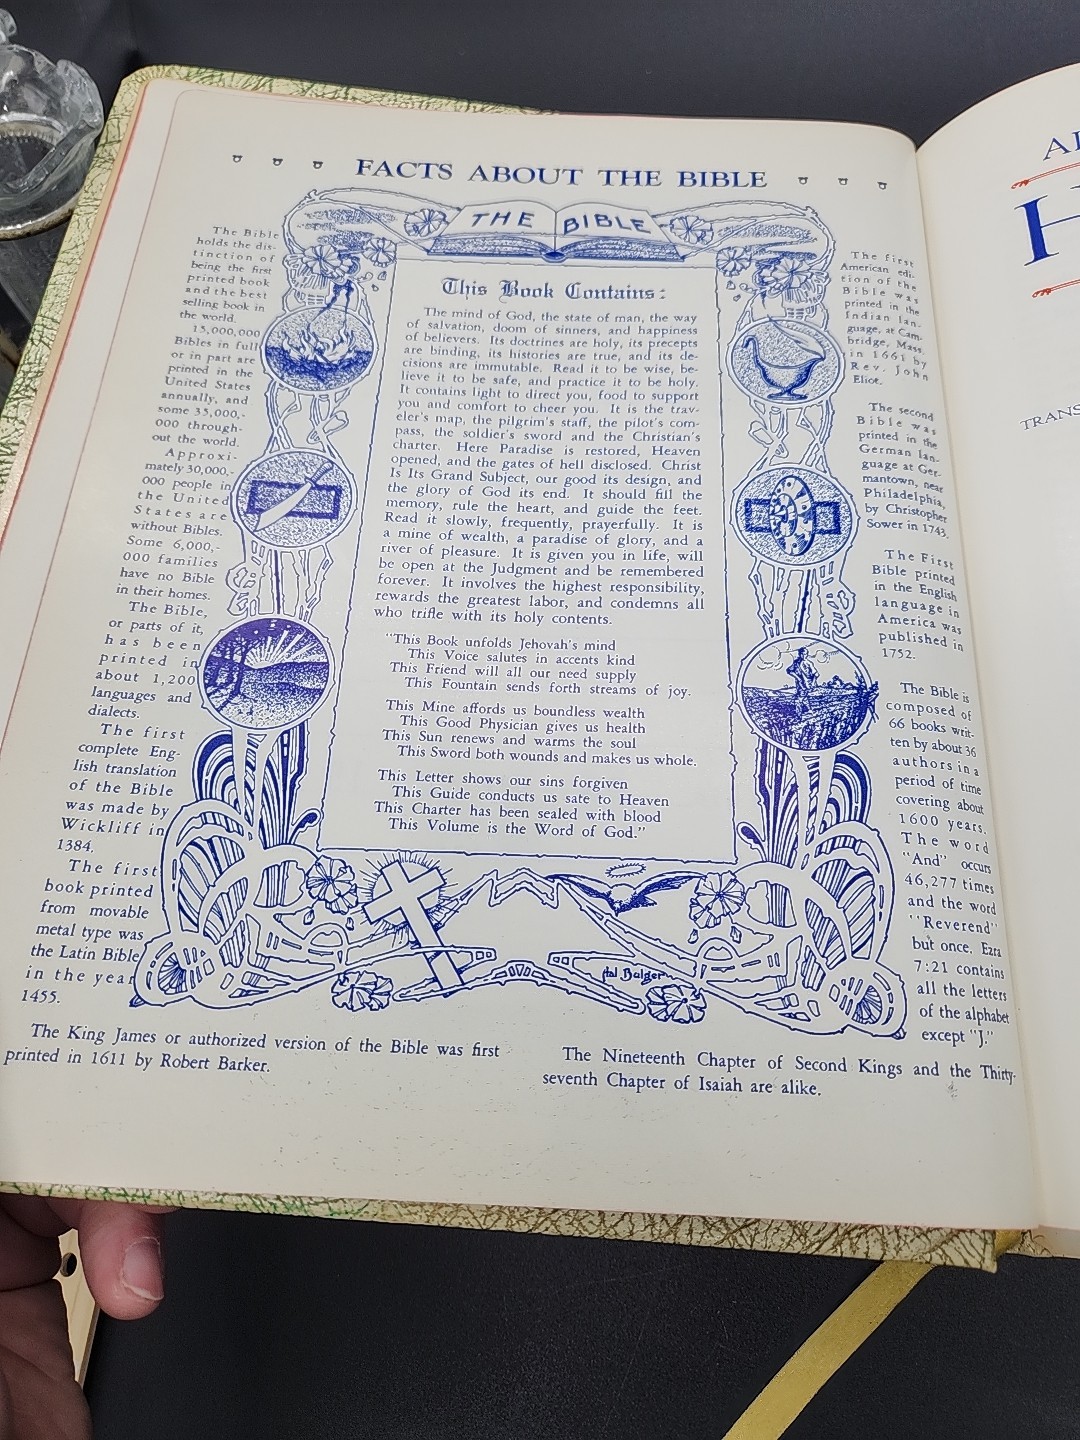 FACTS ABOUT THE BIBLE
THE BIBLE
The Bible
holds the dis-
tinction of
being the first
printed book
and the best
selling book in
the world.
15,000,000
Bibles in full
or in part are
printed in the
United States
annually, and
some 35,000,-
000 through-
out the world.
Approxi-
mately 30,000,-
000 people in
the United
States are
without Bibles.
Some 6,000,-
000 families
have no Bible
in their homes.
The Bible,
or parts of it,
has been
printed in
about 1,200
languages and
dialects.
The first
complete Eng-
lish translation
of the Bible
was made by
Wickliff in
1384.
The first
book printed
from movable
metal type was
the Latin Bible
in the year
1455.
This Book Contains:
The mind of God, the state of man, the way
of salvation, doom of sinners, and happiness
of believers. Its doctrines are holy, its precepts
are binding, its histories are true, and its de-
cisions are immutable. Read it to be wise, be-
lieve it to be safe, and practice it to be holy.
It contains light to direct you, food to support
you and comfort to cheer you. It is the trav-
eler's map, the pilgrim's staff, the pilot's com-
pass, the soldier's sword and the Christian's
charter. Here Paradise is restored, Heaven
opened, and the gates of hell disclosed. Christ
Is Its Grand Subject, our good its design, and
the glory of God its end. It should fill the
memory, rule the heart, and guide the feet.
Read it slowly, frequently, prayerfully. It is
a mine of wealth, a paradise of glory, and a
river of pleasure. It is given you in life, will
be open at the Judgment and be remembered
forever. It involves the highest responsibility,
rewards the greatest labor, and condemns all
who trifle with its holy contents.
"This Book unfolds Jehovah's mind
This Voice salutes in accents kind
This Friend will all our need supply
This Fountain sends forth streams of joy.
This Mine affords us boundless wealth
This Good Physician gives us health
This Sun renews and warms the soul
This Sword both wounds and makes us whole.
This Letter shows our sins forgiven
This Guide conducts us sate to Heaven
This Charter has been sealed with blood
This Volume is the Word of God."
Hal Bolger
The first
American edi-
tion of the
Bible was
printed in the
Indian lan-
guage, at Cam-
bridge, Mass.
in 1661 by
Rev. John
Eliot.
The second
Bible was
printed in the
German lan-
guage at Ger-
mantown, near
Philadelphia,
by Christopher
Sower in 1743.
The First
Bible printed
in the English
language in
America was
published in
1752.
The Bible is
composed of
66 books writ-
ten by about 36
authors in a
period of time
covering about
1600 years.
The word
"And" occurs
46,277 times
and the word
"Reverend"
but once. Ezra
7:21 contains
all the letters
of the alphabet
except "J."
The King James or authorized version of the Bible was first
printed in 1611 by Robert Barker.
The Nineteenth Chapter of Second Kings and the Thirty-
seventh Chapter of Isaiah are alike.
H
TRANS